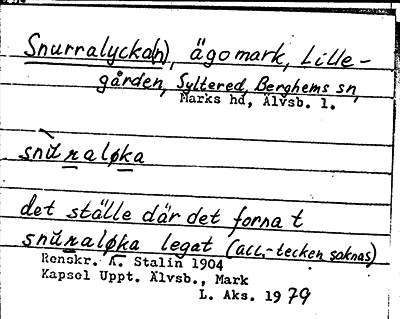 Snurralycka(n), ägomark, Lille-
gården, Syltered, Berghems sn,
Marks hd, Älvsb. l.
snùraløka
det ställe där det forna t
snuraløka legat (acc.-tecken saknas)
Renskr. A. Stalin 1904
Kapsel Uppt. Älvsb., Mark
L. Aks. 1979